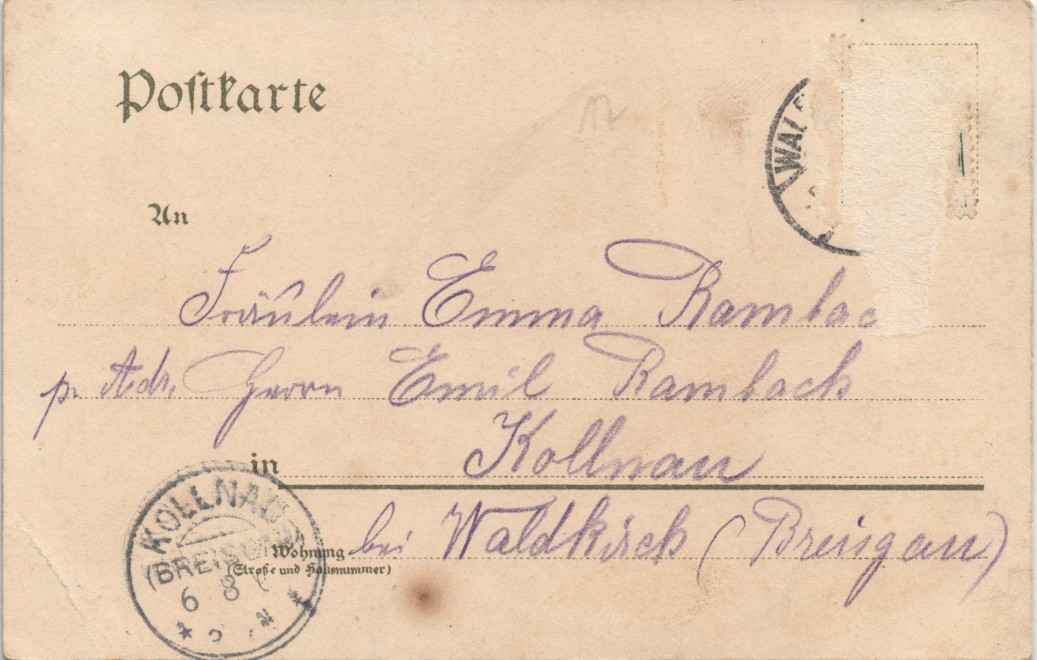 Postkarte
12
WAL
An
Fräulein Emma Rambac
p. Adr. Herrn Emil Rambach
in Kollnau
Wohnung bei Waldkirch (Breisgau)
(Straße und Hausnummer)
KOLLNAU
(BREISGAU)
6 8
N